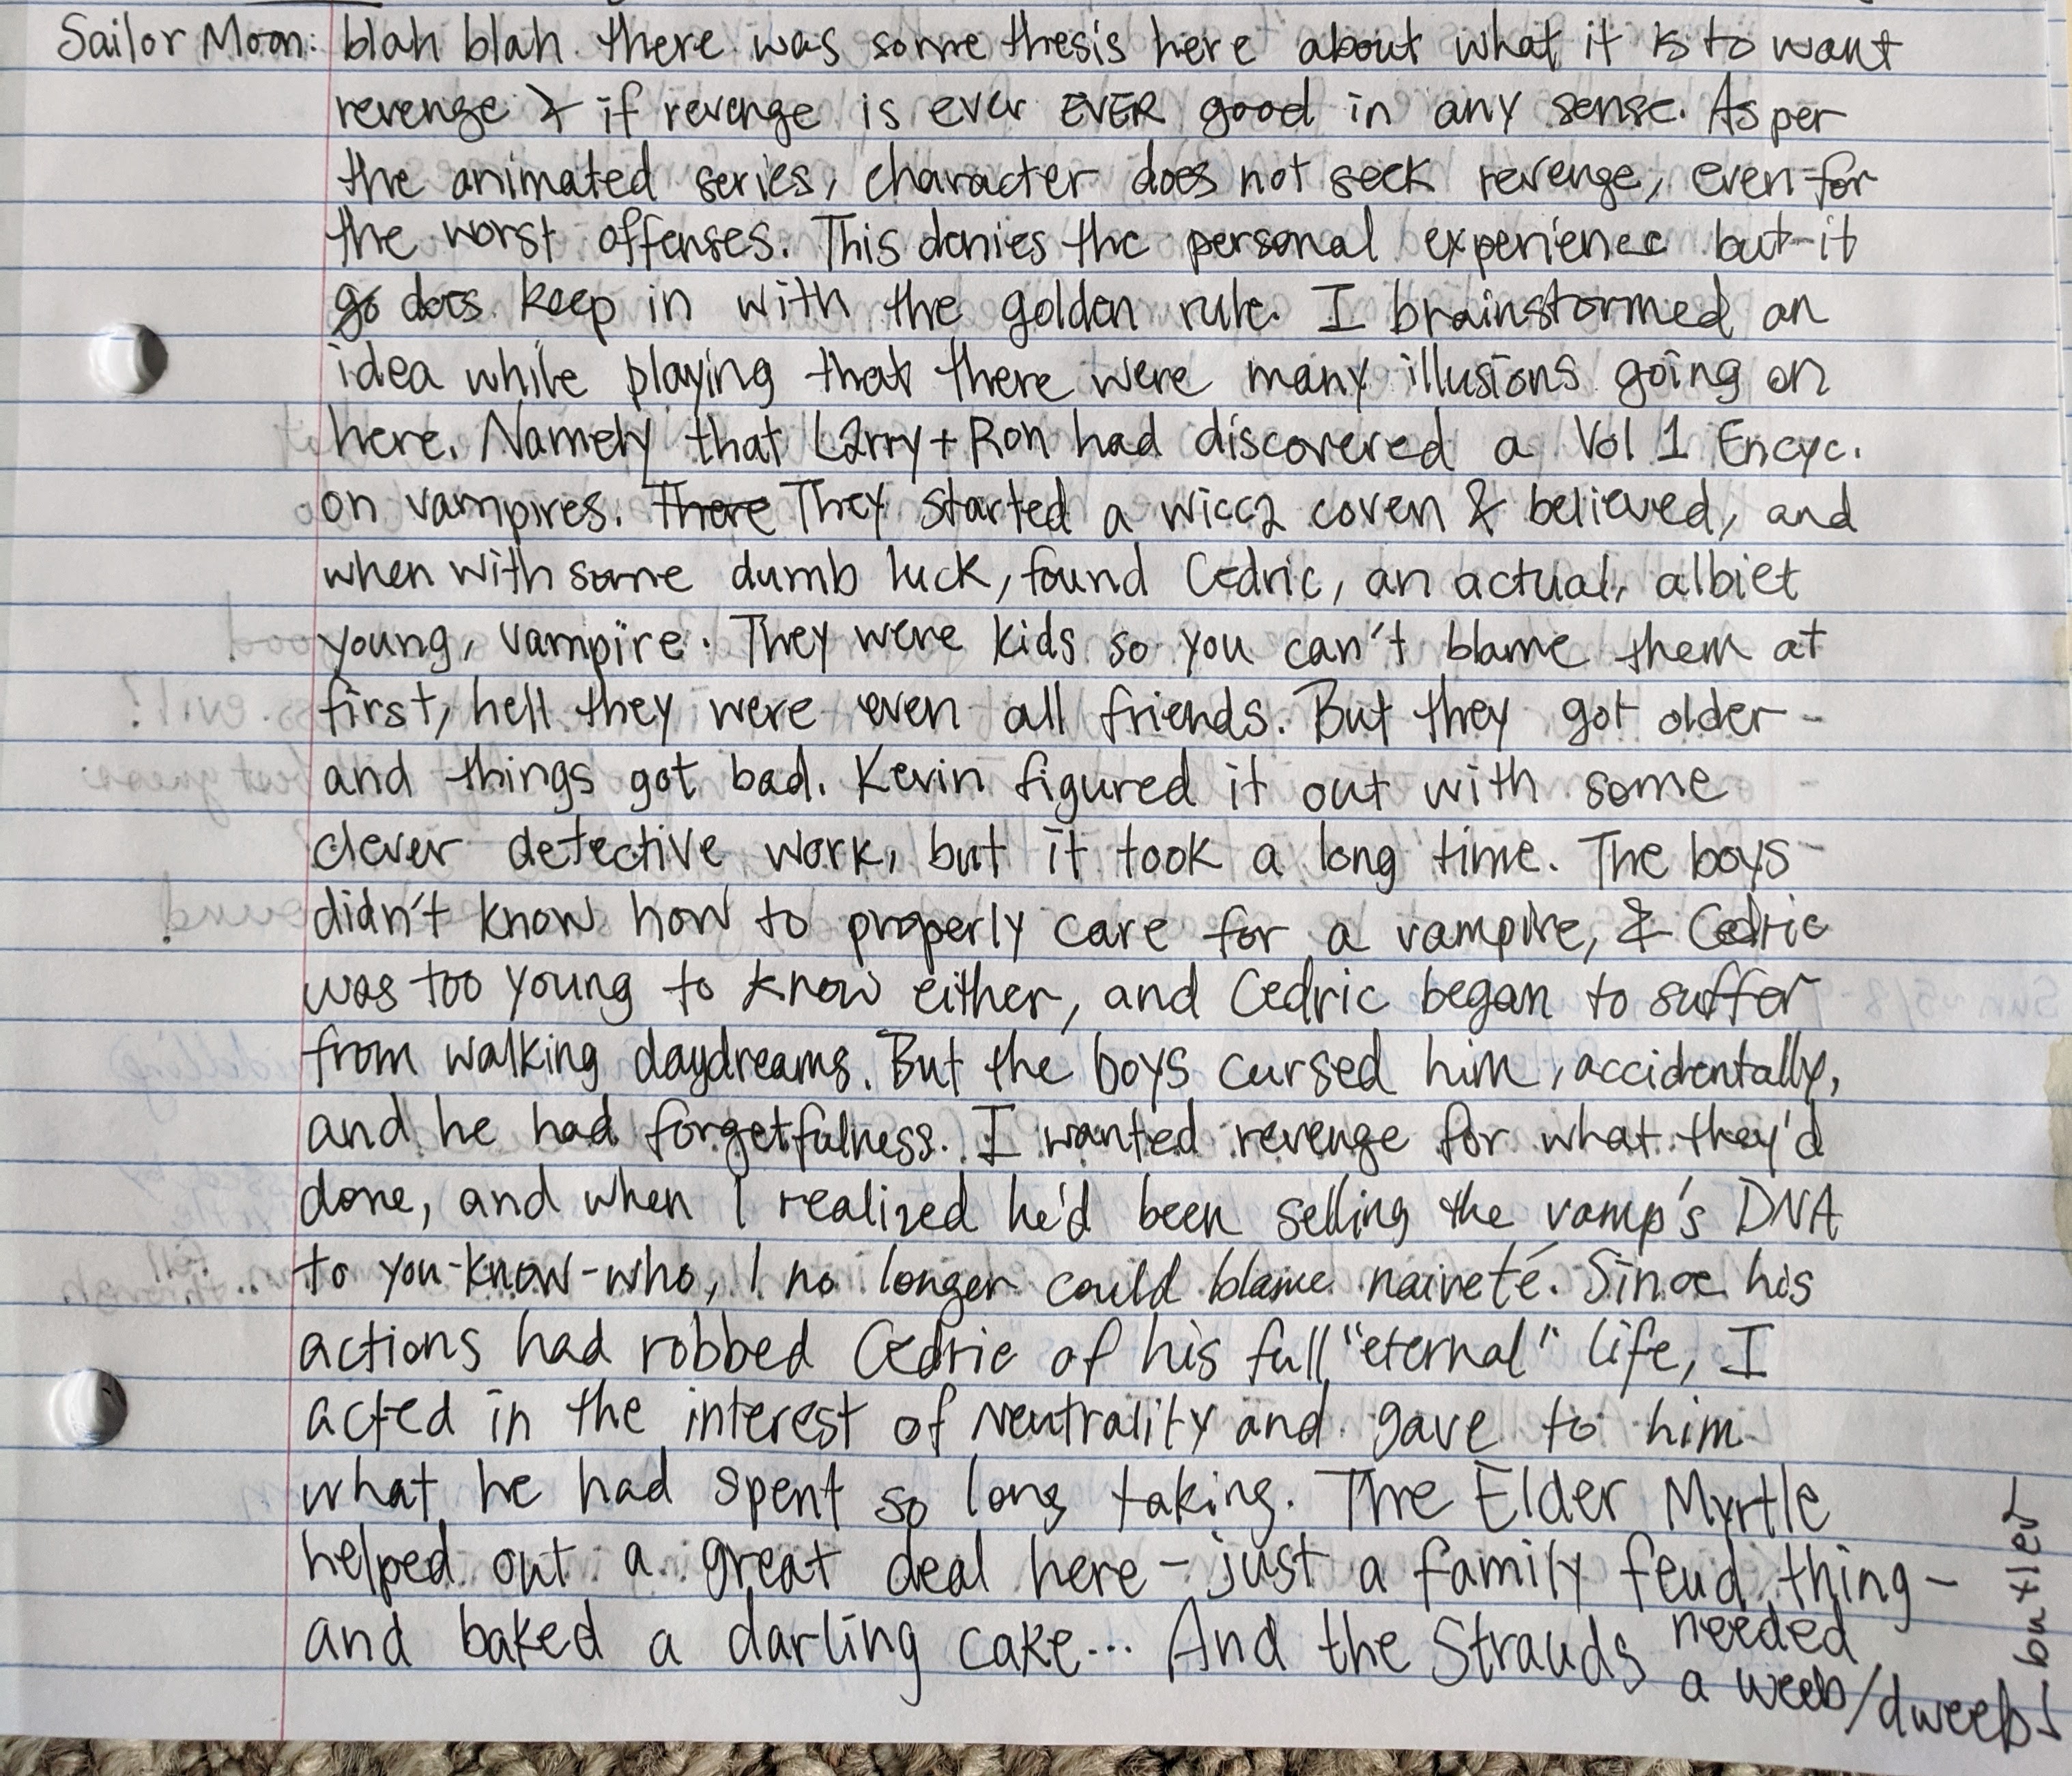 Sailor Moon: blah blah. there was some thesis here about what it is to want
revenge & if revenge is ever EVER good in any sense. As per
the animated series, character does not seek revenge, even for
the worst offenses. This denies the personal experience but it
go does keep in with the golden rule. I brainstormed an
idea while playing that there were many illusions going on
here. Namely that Larry + Ron had discovered a Vol 1 Encyc.
on vampires. There They started a wicca coven & believed, and
when with some dumb luck, found Cedric, an actual, albiet
young, vampire. They were kids so you can't blame them at
first, hell they were even all friends. But they got older -
and things got bad. Kevin figured it out with some
clever detective work, but it took a long time. The boys
didn't know how to properly care for a vampire, & Cedric
was too young to know either, and Cedric began to suffer
from walking daydreams. But the boys cursed him, accidentally,
and he had forgetfulness. I wanted revenge for what they'd
done, and when I realized he'd been selling the vamp's DNA
to you-know-who, I no longer could blame naiveté. Since his
actions had robbed Cedric of his full "eternal" life, I
acted in the interest of Neutrality and gave to him
what he had spent so long taking. The Elder Myrtle
helped out a great deal here - just a family feud thing -
and baked a darling cake... And the Strauds needed
a weeb/dweeb
butler